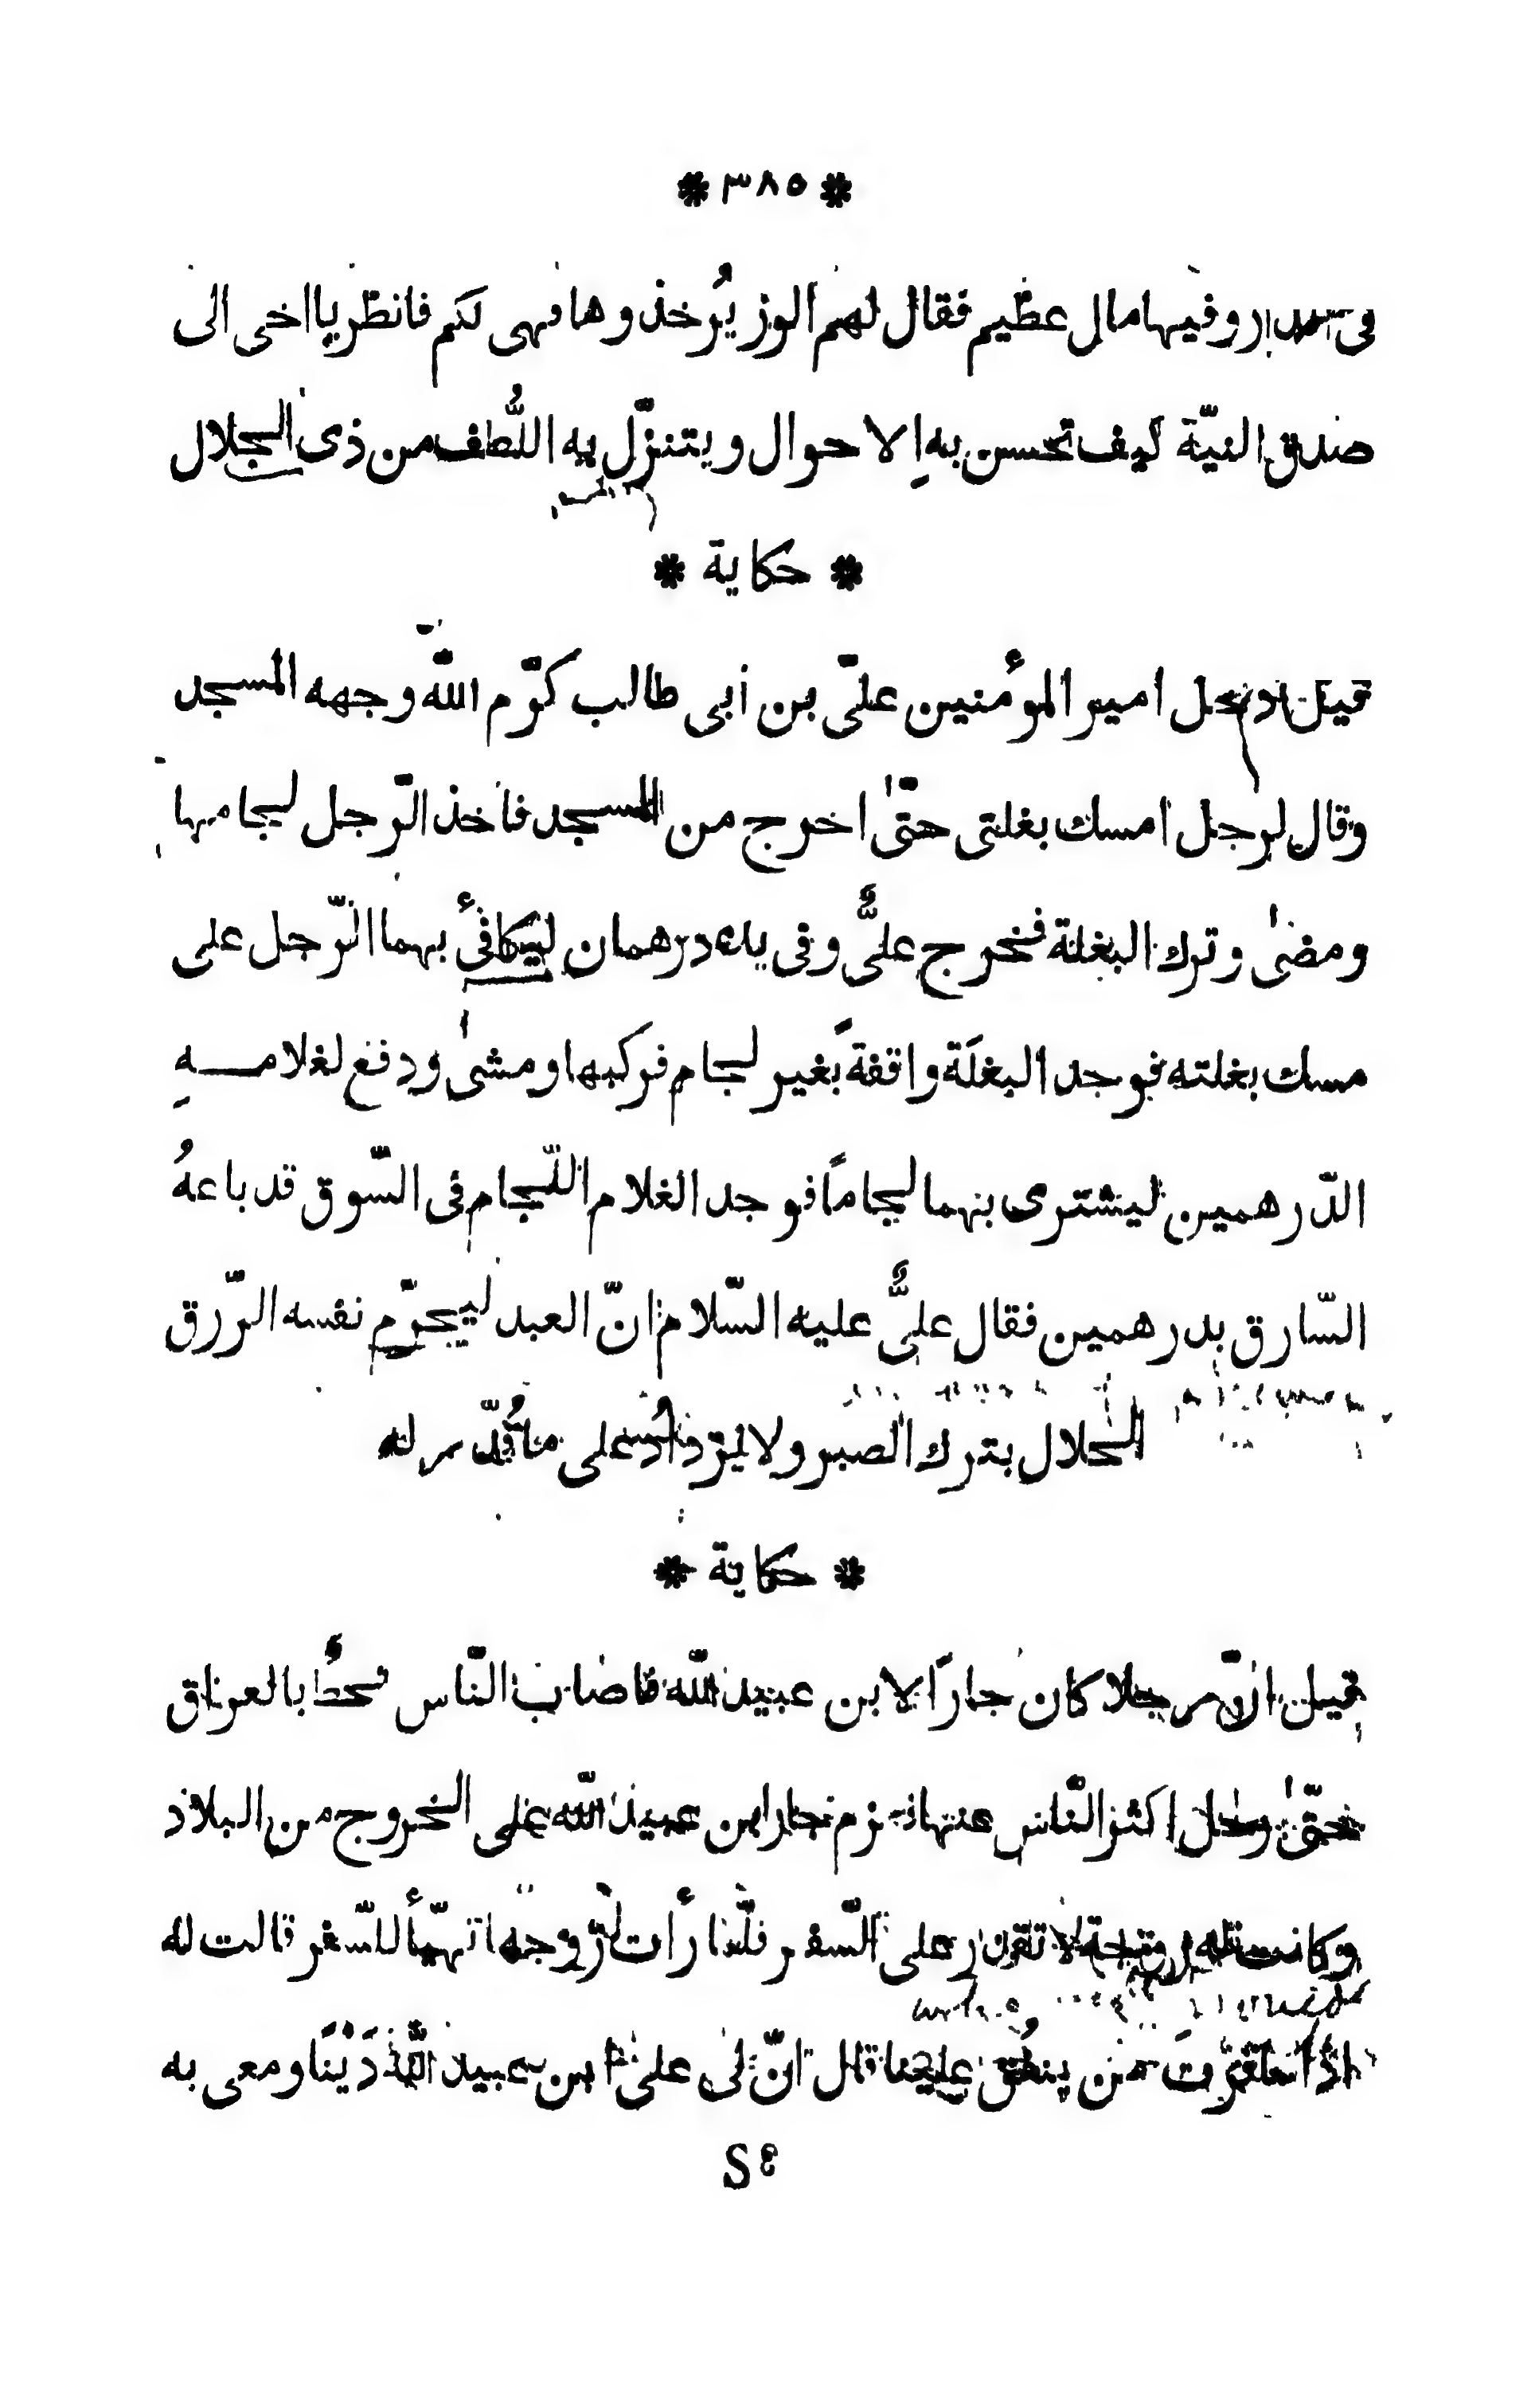 * ٣٨٥ *
فى وفيها مال عظيم فقال لهم الوزيرُ خذوها فهى لكم فانظر يا اخى الى
صدق النيّة كيف تحسن به الاحوال ويتنزّل به اللُّطف من ذى الجلال
* حكاية *
قيل دخل امير المؤمنين علىّ بن أبى طالب كرّم اللّه وجهه المسجد
وقال لرجل امسك بغلتى حتّىٰ اخرج من المسجد فاخذ الرّجل لجامها
ومضىٰ وترك البغلة فخرج علىٌّ وفى يده درهمان ليكافئ بهما الرّجل على
مسك بغلته فوجد البغلَة واقفةً بغير لجام فركبها ومشىٰ ودفع لغلامـــهِ
الدّرهمين ليشترى بهما لجامًا فوجد الغلام اللّجام فى السّوق قد باعهُ
السّارق بدرهمين فقال علىٌّ عليه السّلام انّ العبد ليحرّم نفسه الرّزق
الحلال بترك الصبر ولا يزدادُ على ما قُدّر له
* حكاية *
قيل انّ رجلا كان جارًا لابن عبيد اللّه فاصاب النّاس قحطٌ بالعراق
حتّىٰ رحل اكثر النّاس عنها فعزم جار ابن عبيد اللّه على الخروج من البلاد
وكانت له زوجة لا تقدر على السّفر فلمّا رأت زوجها تهيّأ للسّفر قالت له
اذا سافرت من ينفق علينا قال انّ لى علىٰ ابن عبيد اللّه دَيْنًا ومعى به
S ع